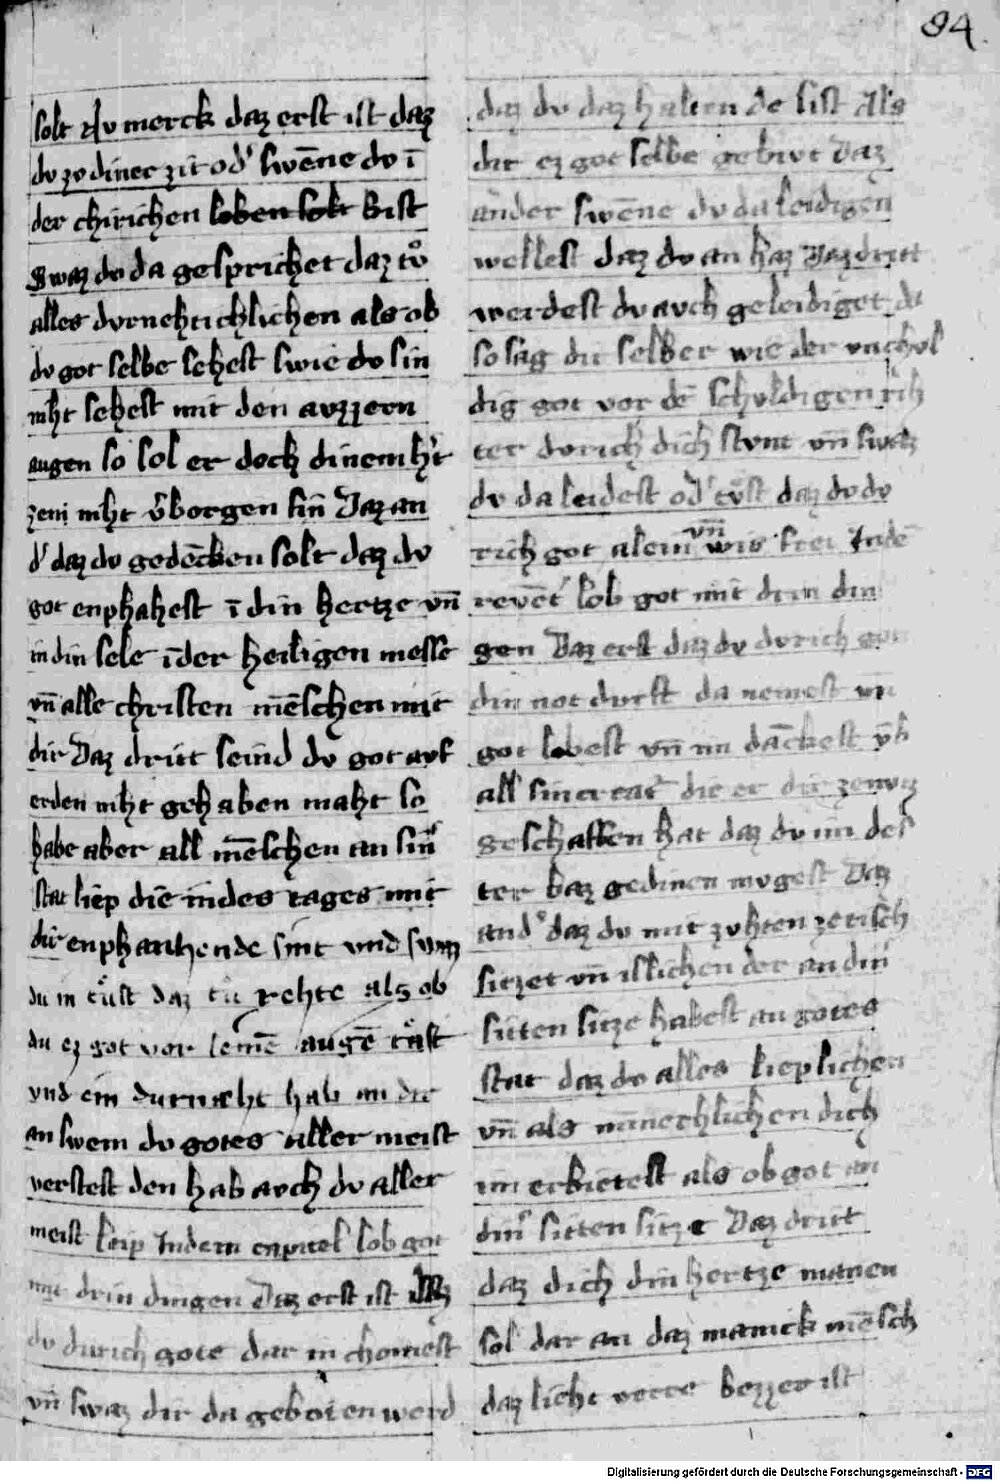 84.
solt Nv merck daz erst ist daz
dv zv diner zit od' swēne dv ī
der chirichen loben solt Bist
Swaz dv da gesprichet daz tv̊
alles dvrnehtichlichen als ob
dv got selbe sehest swie dv sin
niht sehest mit den avzzern
augen so sol er doch dinem h'r
zen niht v̄borgen sin Daz an
d' daz dv gedēcken solt daz dv
got enphahest ī din hertze vn̄
in din sele īder heiligen messe
vn̄ alle christen mēschen mit
dir Daz dritt seind dv got avf
erden niht gehaben maht so
habe aber all mēschen an sin'
stat liep die indes tages mit
dir enphanhende sint vnd swaz
du in tůst daz tů rehte als ob
du ez got vor seinē augē tåst
vnd ein durnæht hab an dir
an swem dv gotes aller meist
verstest den hab avch dv aller
meist leip Indem capitel lob got
mit drin dingen Daz erst ist daz
dv durich gote dar in chomest
vn̄ swaz dir da geboten werd
daz dv daz haltende sist Als
dir ez got selbe gebivt Daz
ander swēne dv da leidigen
wellest daz dv an haz Daz dritt
werdest dv avch geleidiget da
so sag dir selber wie der vnchvl
dig got vor dē schvldigen rih
ter dvrich dich stvnt vn̄ swaz
dv da leidest od' tv̊st daz dv dv
rich got alein vn̄ wis frei Indē
revēt' lob got mit drin din
gen Daz erst daz dv dvrich got
din notdvrft da nemest vn̄
got lobest vn̄ im dāckest v̄b
all sin creat' die er dir zenvtz
geschaffen hat daz dv im des
ter baz gedinen mvgest Daz
and' daz dv mit zvhten zetisch
sitzet vn̄ islichen der an din'
siten sitze habest an gotes
stat daz dv alles lieplichen
vn̄ als mīnechlichen dich
im erbietest als ob got an
din' sitten sitze Daz dritt
daz dich din hertze manen
sol dar an daz manick mēsch
daz licht verre bezzer ist
Digitalisierung gefördert durch die Deutsche Forschungsgemeinschaft - DFG